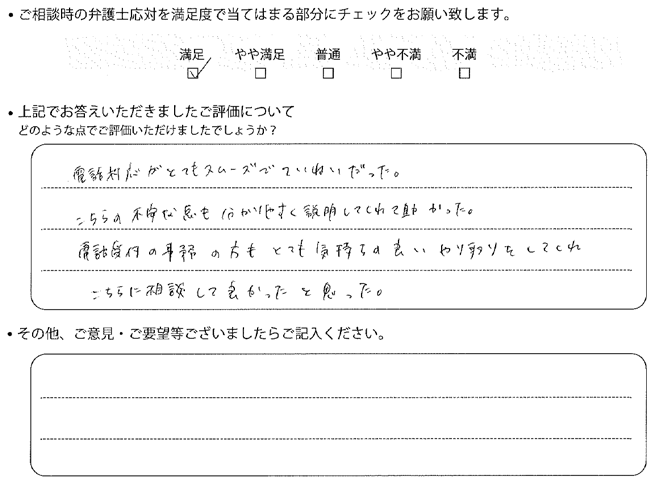 • ご相談時の弁護士応対を満足度で当てはまる部分にチェックをお願い致します。
満足 やや満足 普通 やや不満 不満
☑ □ □ □ □
• 上記でお答えいただきましたご評価について
どのような点でご評価いただけましたでしょうか?
電話対応がとてもスムーズでていねいだった。
こちらの不安な点も分かりやすく説明してくれて助かった。
電話受付の事務の方もとても気持ちの良いやり取りをしてくれ
こちらに相談して良かったと思った。
• その他、ご意見・ご要望等ございましたらご記入ください。